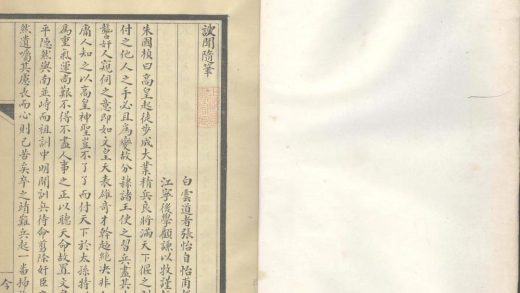 謏聞隨筆
白雲道者張怡自怡甫
江寧後學顧謙以牧謹
朱國楨曰高皇起徒步成大業精兵良將滿天下偃之
付之他人之手必且為變故分隸諸王使之習兵盡其
讋奸人窺伺之意即如文皇天表雄奇才幹超絶決非
庸人知之以高皇神聖豈不了了而付天下於太孫特
為重氣運尚艱不得不盡人事之正以聽天命故置文
平隱然與南並峙而祖訓中明開訓兵待命翦除奸臣
然遺囑其慮長而心則已苦矣卒之靖難兵起一番掃
今